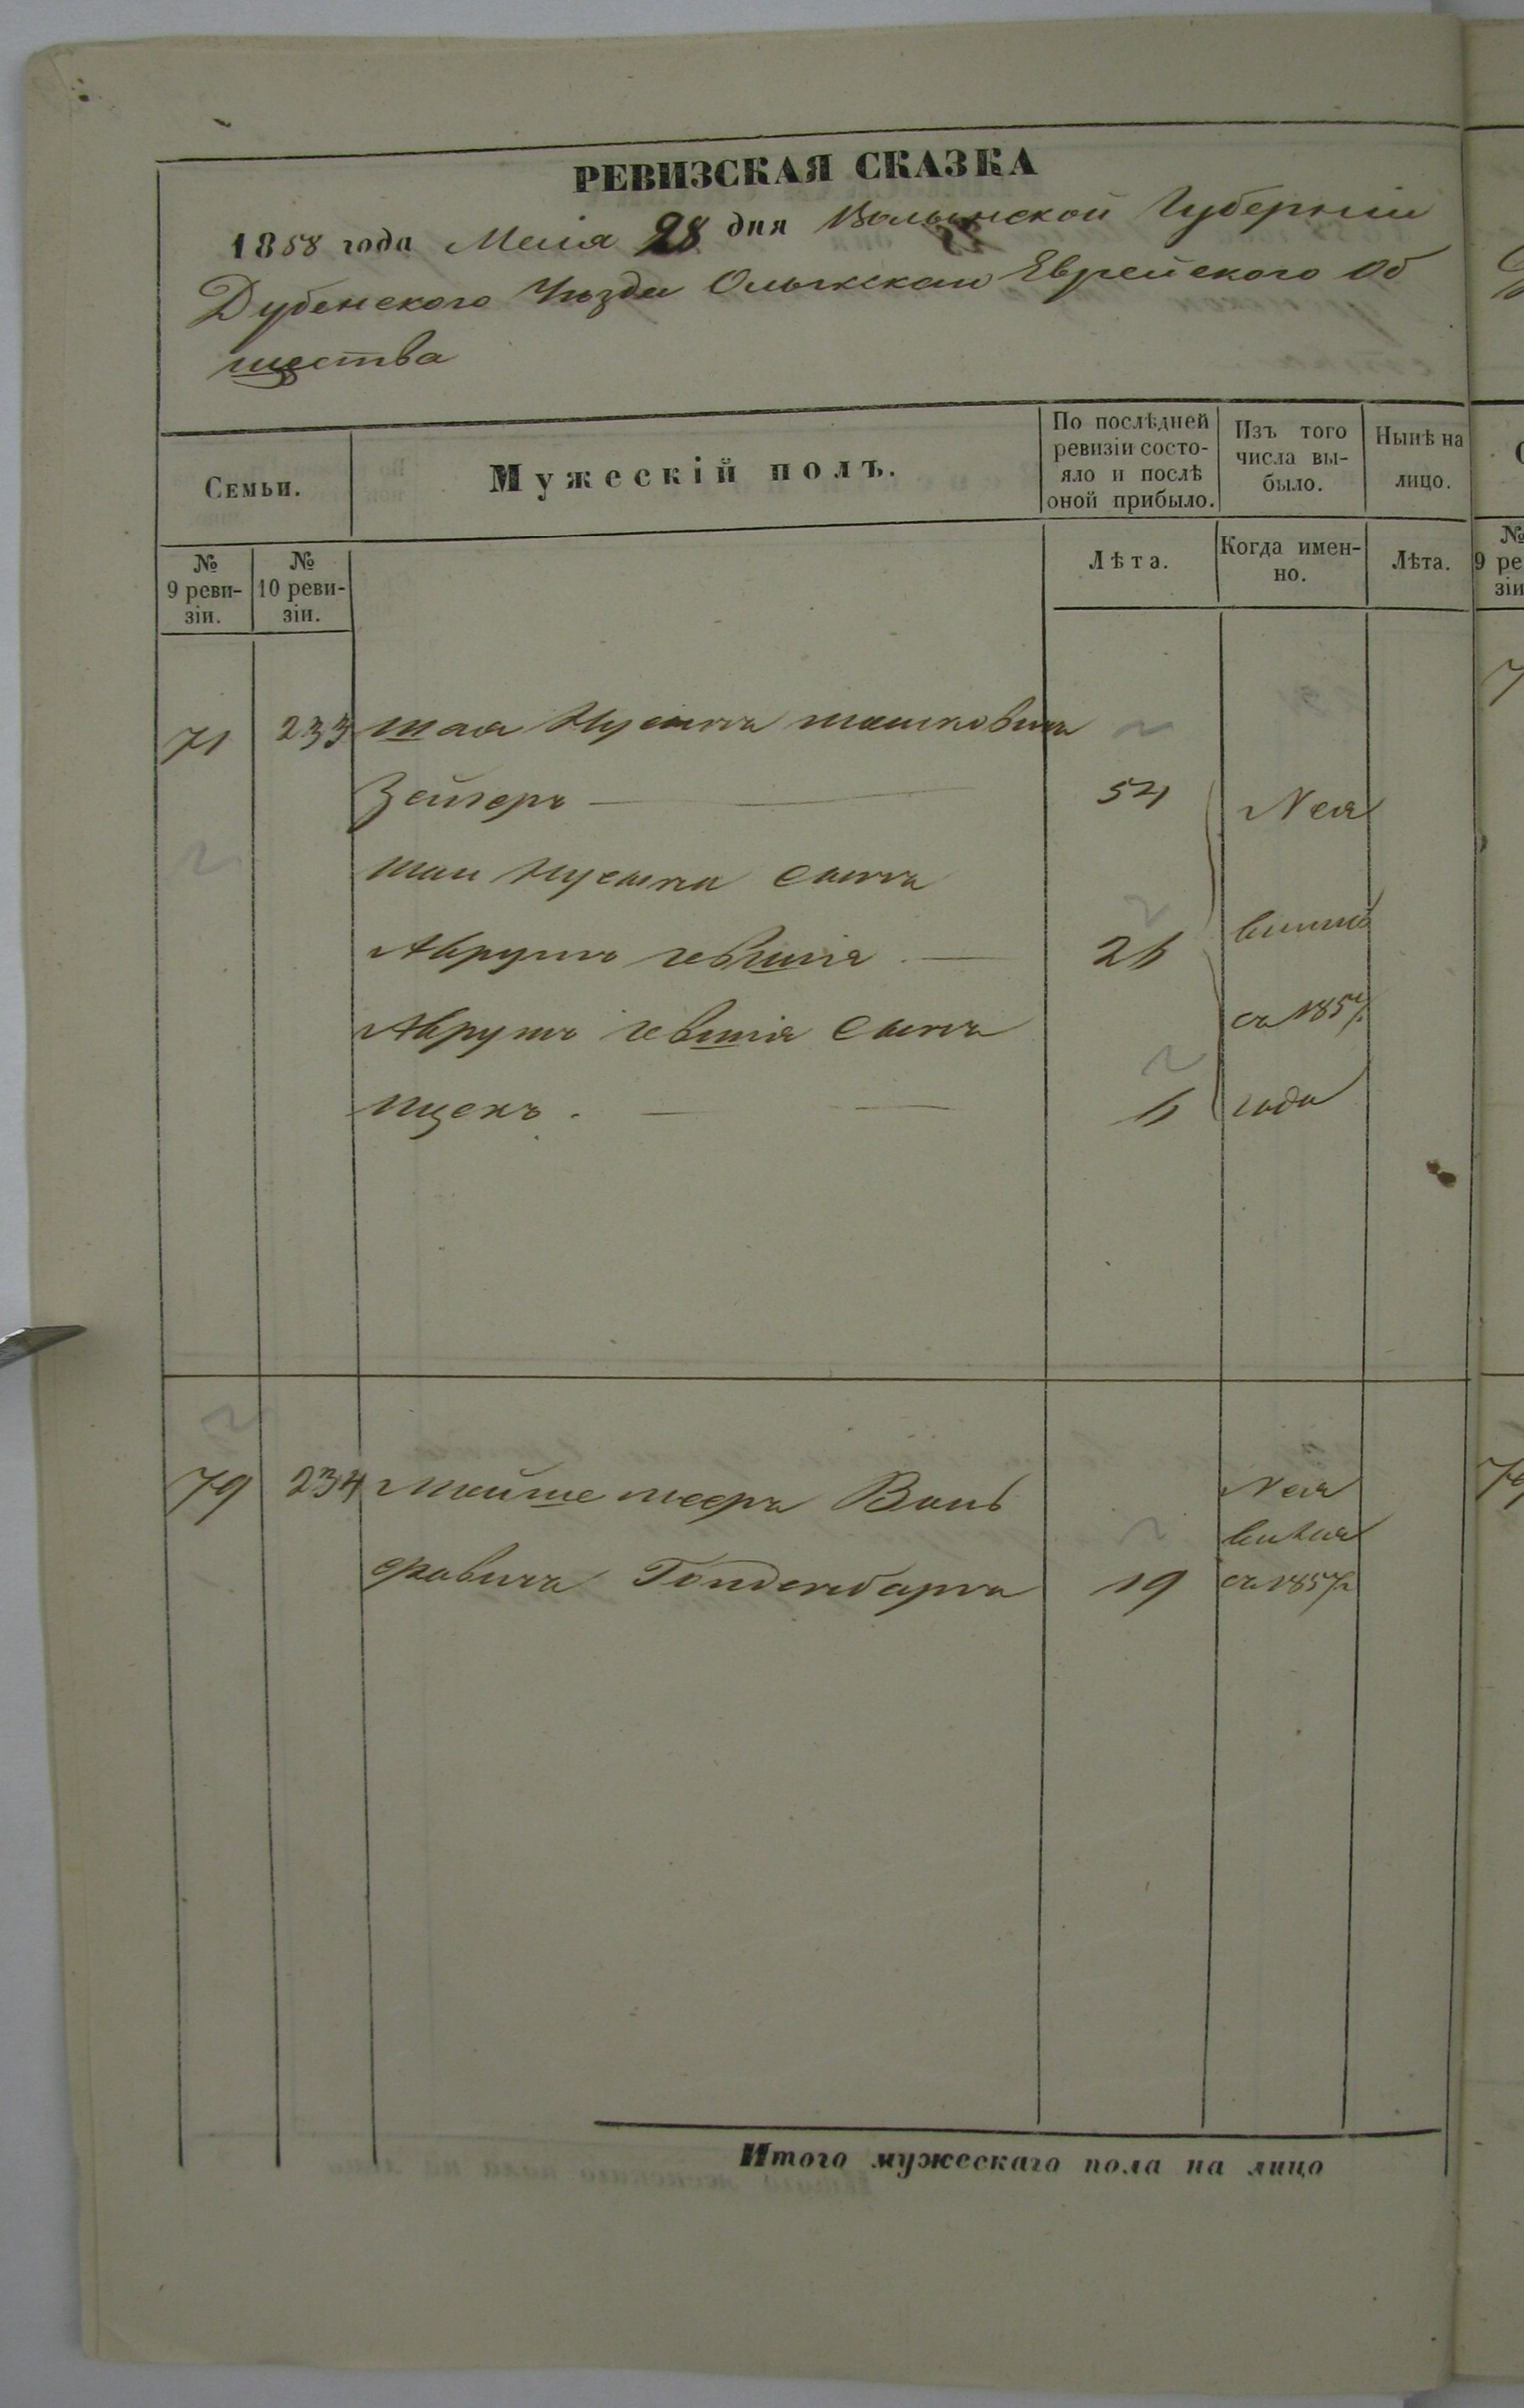 РЕВИЗСКАЯ СКАЗКА
1858 года Маія 28 дня Волынской Губерніи
Дубенского Уѣзда Олыкскаго Еврейского Об
щества
Семьи.
Мужескій полъ.
По послѣдней ревизіи состо-
яло и послѣ
оной прибыло.
Изъ того
числа вы-
было.
Нынѣ на
лицо.
№
9 реви-
зіи.
№
10 реви-
зіи.
Лѣта.
Когда имен-
но.
Лѣта.
71 233 Шая Нусынъ Мошковичъ
Зейгеръ 54 Нея
Шаи Нусына сынъ
Аврумъ 26 вились
Аврумъ сынъ съ 1857
Ицекъ. 6 года
79 234 Мойше Вольфовичъ Голденбаргъ 19 Нея
вился
съ 1857
Итого мужескаго пола на лицо